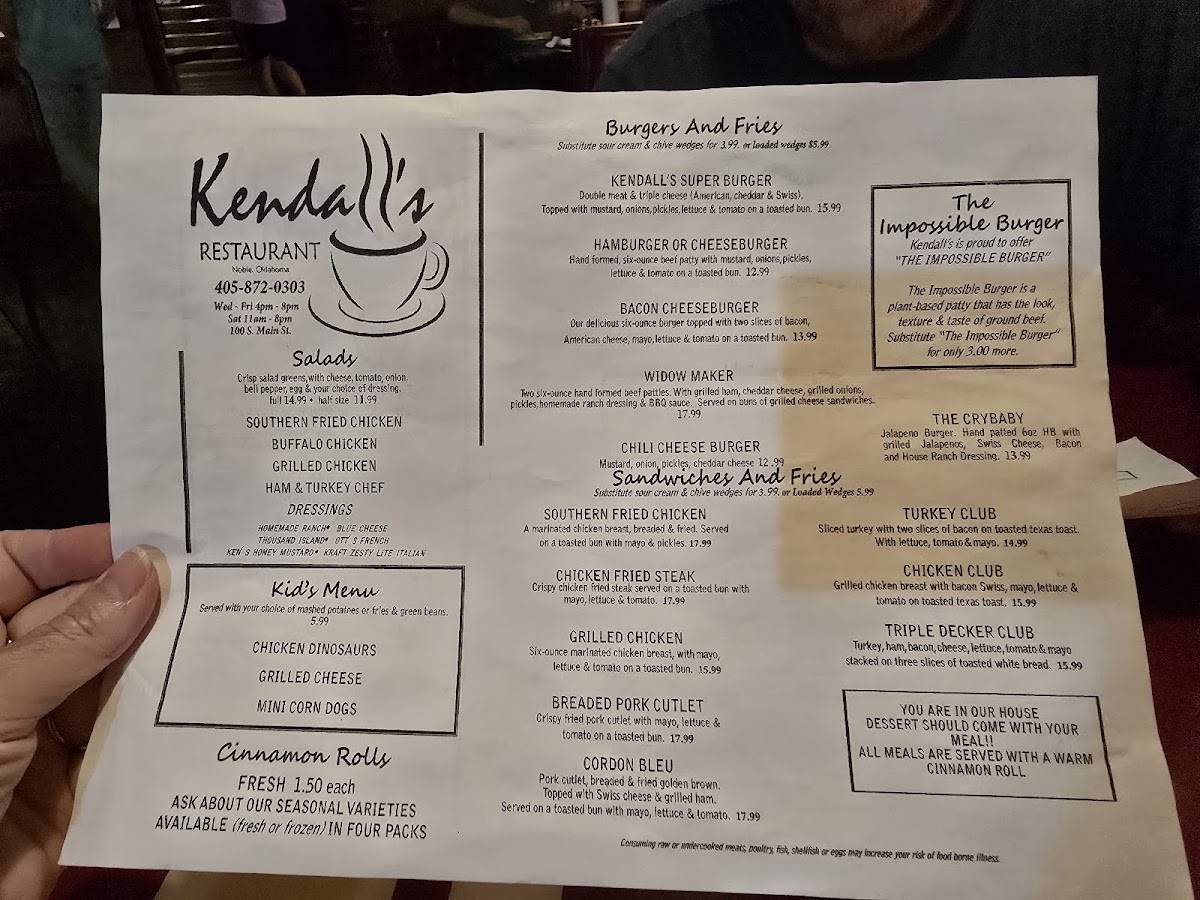 Kendall's
RESTAURANT
Noble, Oklahoma
405-872-0303
Wed - Fri 4pm - 8pm
Sat 11am - 8pm
100 S. Main St.
Salads
Crisp salad greens, with cheese, tomato, onion,
bell pepper, egg & your choice of dressing.
full 14.99 • half size 11.99
SOUTHERN FRIED CHICKEN
BUFFALO CHICKEN
GRILLED CHICKEN
HAM & TURKEY CHEF
DRESSINGS
HOMEMADE RANCH* BLUE CHEESE
THOUSAND ISLAND* OTT S FRENCH
KEN S HONEY MUSTARD* KRAFT ZESTY LITE ITALIAN
Kid's Menu
Served with your choice of mashed potatoes or fries & green beans.
5.99
CHICKEN DINOSAURS
GRILLED CHEESE
MINI CORN DOGS
Cinnamon Rolls
FRESH 1.50 each
ASK ABOUT OUR SEASONAL VARIETIES
AVAILABLE (fresh or frozen) IN FOUR PACKS
Burgers And Fries
Substitute sour cream & chive wedges for 3.99. or loaded wedges $5.99
KENDALL'S SUPER BURGER
Double meat & triple cheese (American, cheddar & Swiss).
Topped with mustard, onions, pickles, lettuce & tomato on a toasted bun. 15.99
HAMBURGER OR CHEESEBURGER
Hand formed, six-ounce beef patty with mustard, onions, pickles,
lettuce & tomato on a toasted bun. 12.99
BACON CHEESEBURGER
Our delicious six-ounce burger topped with two slices of bacon,
American cheese, mayo, lettuce & tomato on a toasted bun. 13.99
WIDOW MAKER
Two six-ounce hand formed beef patties. With grilled ham, cheddar cheese, grilled onions,
pickles, homemade ranch dressing & BBQ sauce. Served on buns of grilled cheese sandwiches.
17.99
CHILI CHEESE BURGER
Mustard, onion, pickles, cheddar cheese 12 .99
The
Impossible Burger
Kendall's is proud to offer
"THE IMPOSSIBLE BURGER"
The Impossible Burger is a
plant-based patty that has the look,
texture & taste of ground beef.
Substitute "The Impossible Burger"
for only 3.00 more.
THE CRYBABY
Jalapeno Burger. Hand patted 6oz HB with
grilled Jalapenos, Swiss Cheese, Bacon
and House Ranch Dressing. 13.99
Sandwiches And Fries
Substitute sour cream & chive wedges for 3.99. or Loaded Wedges 5.99
SOUTHERN FRIED CHICKEN
A marinated chicken breast, breaded & fried. Served
on a toasted bun with mayo & pickles. 17.99
CHICKEN FRIED STEAK
Crispy chicken fried steak served on a toasted bun with
mayo, lettuce & tomato. 17.99
GRILLED CHICKEN
Six-ounce marinated chicken breast, with mayo,
lettuce & tomato on a toasted bun. 15.99
BREADED PORK CUTLET
Crispy fried pork cutlet with mayo, lettuce &
tomato on a toasted bun. 17.99
CORDON BLEU
Pork cutlet, breaded & fried golden brown.
Topped with Swiss cheese & grilled ham.
Served on a toasted bun with mayo, lettuce & tomato. 17.99
TURKEY CLUB
Sliced turkey with two slices of bacon on toasted texas toast.
With lettuce, tomato & mayo. 14.99
CHICKEN CLUB
Grilled chicken breast with bacon Swiss, mayo, lettuce &
tomato on toasted texas toast. 15.99
TRIPLE DECKER CLUB
Turkey, ham, bacon, cheese, lettuce, tomato & mayo
stacked on three slices of toasted white bread. 15.99
YOU ARE IN OUR HOUSE
DESSERT SHOULD COME WITH YOUR
MEAL!!
ALL MEALS ARE SERVED WITH A WARM
CINNAMON ROLL
Consuming raw or undercooked meats, poultry, fish, shellfish or eggs may increase your risk of food borne illness.